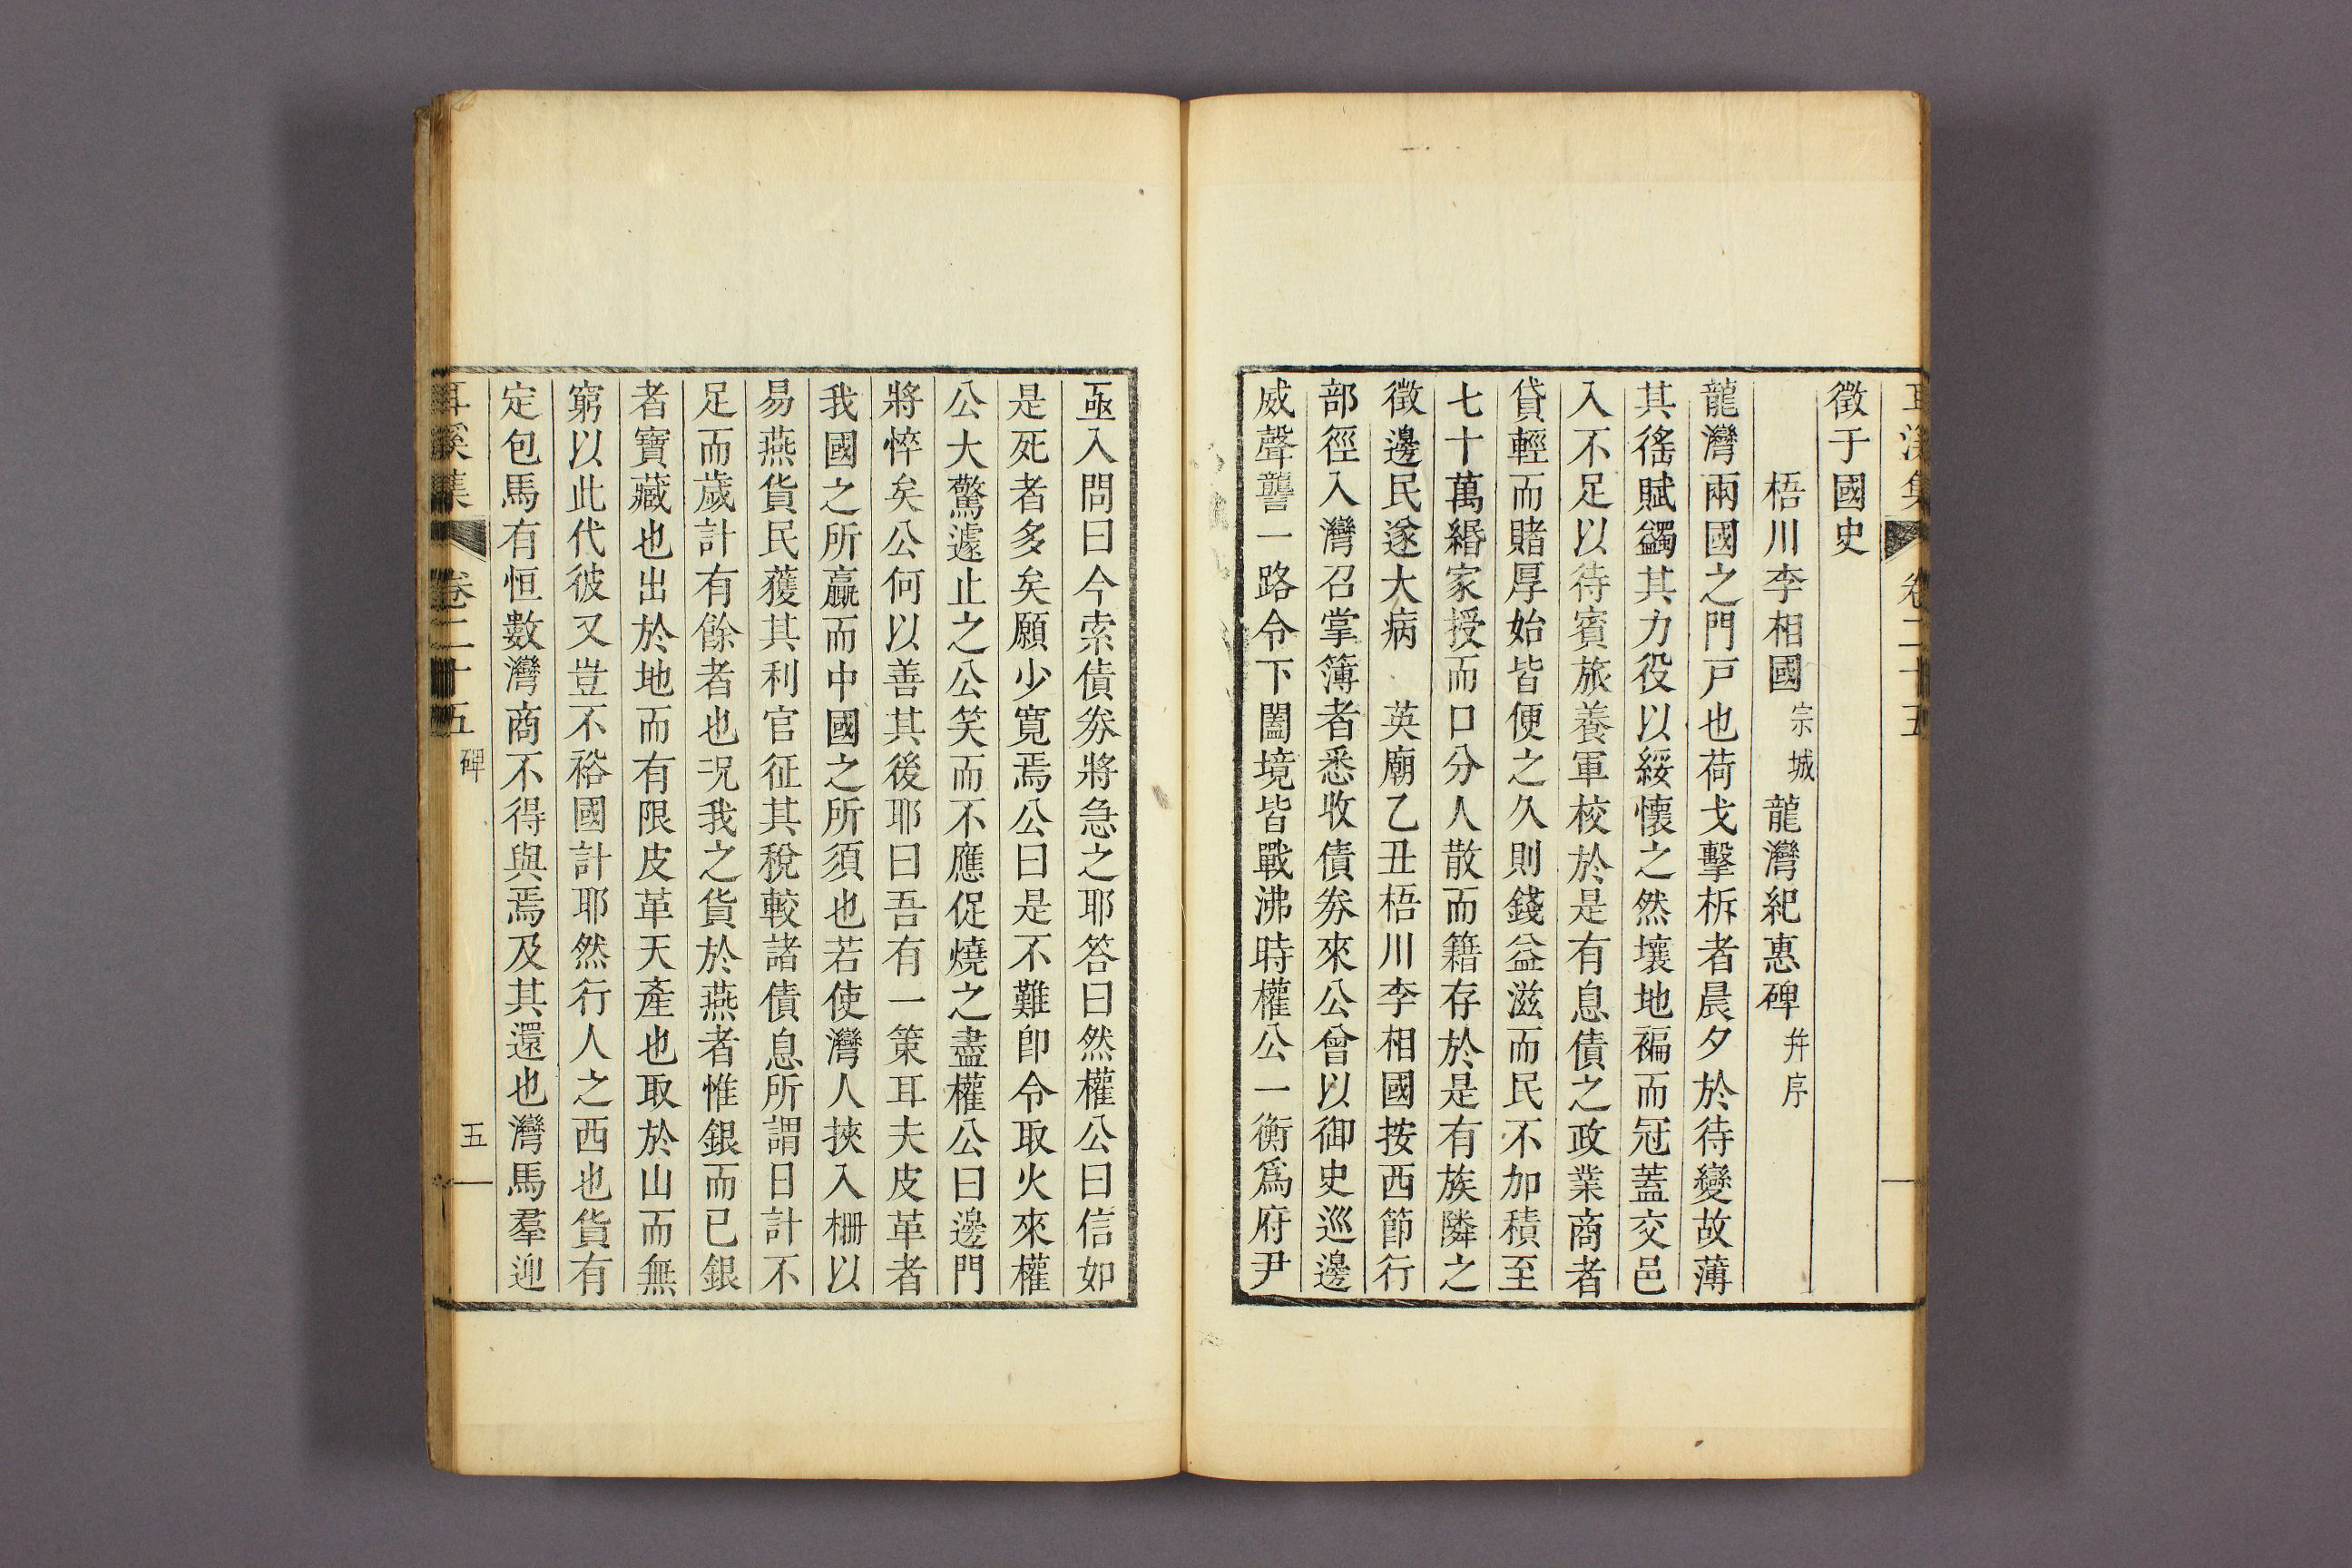 耳溪集 卷二十五
徵于國史
梧川李相國宗城龍灣紀惠碑幷序
龍灣兩國之門戶也荷戈擊柝者晨夕於待變故薄
其徭賦蠲其力役以綏懷之然壤地褊而冠蓋交邑
入不足以待賓旅養軍校於是有息債之政業商者
貸輕而賭厚始皆便之久則錢益滋而民不加積至
七十萬緡家授而口分人散而籍存於是有族隣之
徵邊民遂大病 英廟乙丑梧川李相國按西節行
部徑入灣召掌簿者悉收債券來公曾以御史巡邊
威聲讋一路令下闔境皆戰沸時權公一衡爲府尹
亟入問曰今索債券將急之耶答曰然權公曰信如
是死者多矣願少寬焉公曰是不難卽令取火來權
公大驚遽止之公笑而不應促燒之盡權公曰邊門
將悴矣公何以善其後耶曰吾有一策耳夫皮革者
我國之所贏而中國之所須也若使灣人挾入柵以
易燕貨民獲其利官征其稅較諸債息所謂日計不
足而歲計有餘者也况我之貨於燕者惟銀而已銀
者寶藏也出於地而有限皮革天產也取於山而無
窮以此代彼又豈不裕國計耶然行人之西也貨有
定包馬有恒數灣商不得與焉及其還也灣馬羣迎
耳溪集 卷二十五 碑 五